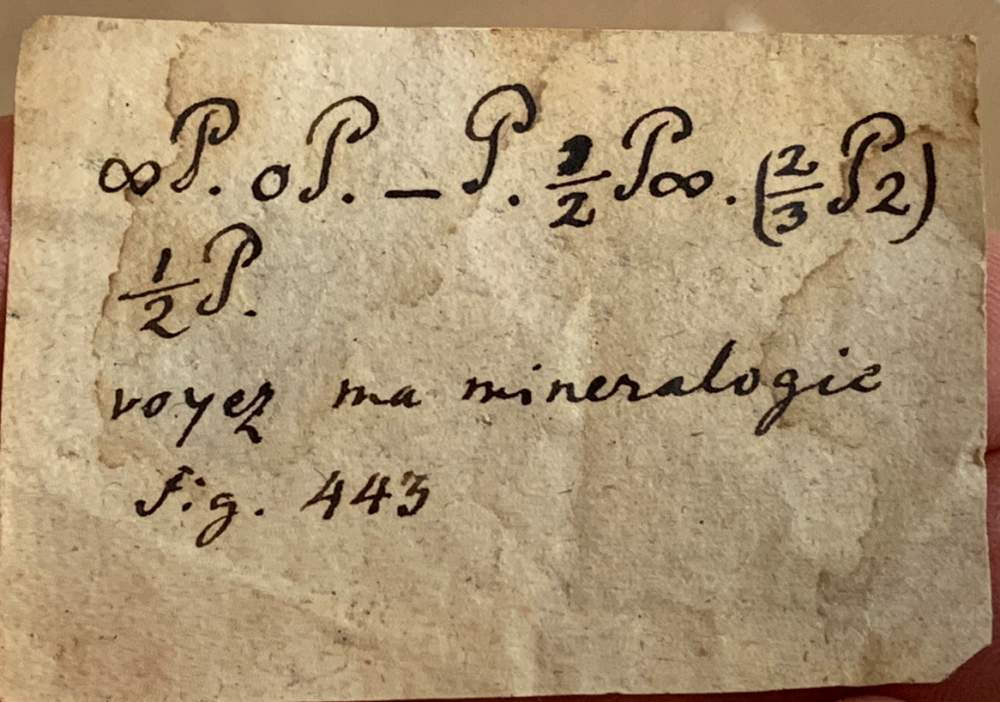 ∞P. oP. – P. 1/2 P∞. (2/3 P2)
1/2 P.
voyez ma mineralogie
fig. 443